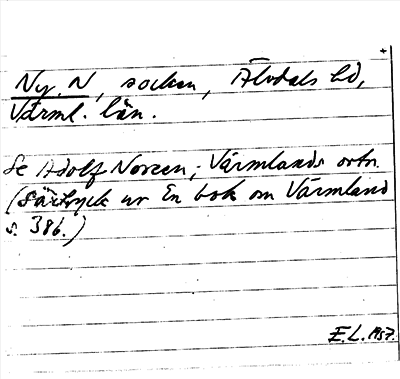 Ny. N, socken, Älvdals hd,
Värml. län.
Se Adolf Noreen, Värmlands ortn.
(Särtryck ur En bok om Värmland
s. 386.)
E.L. 1957.